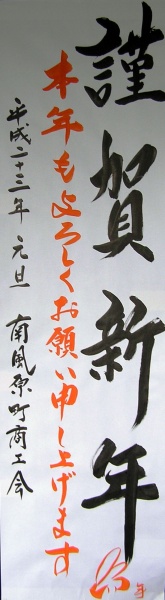 謹賀新年
本年もよろしくお願い申し上げます
平成二十三年 元旦 南風原町商工会